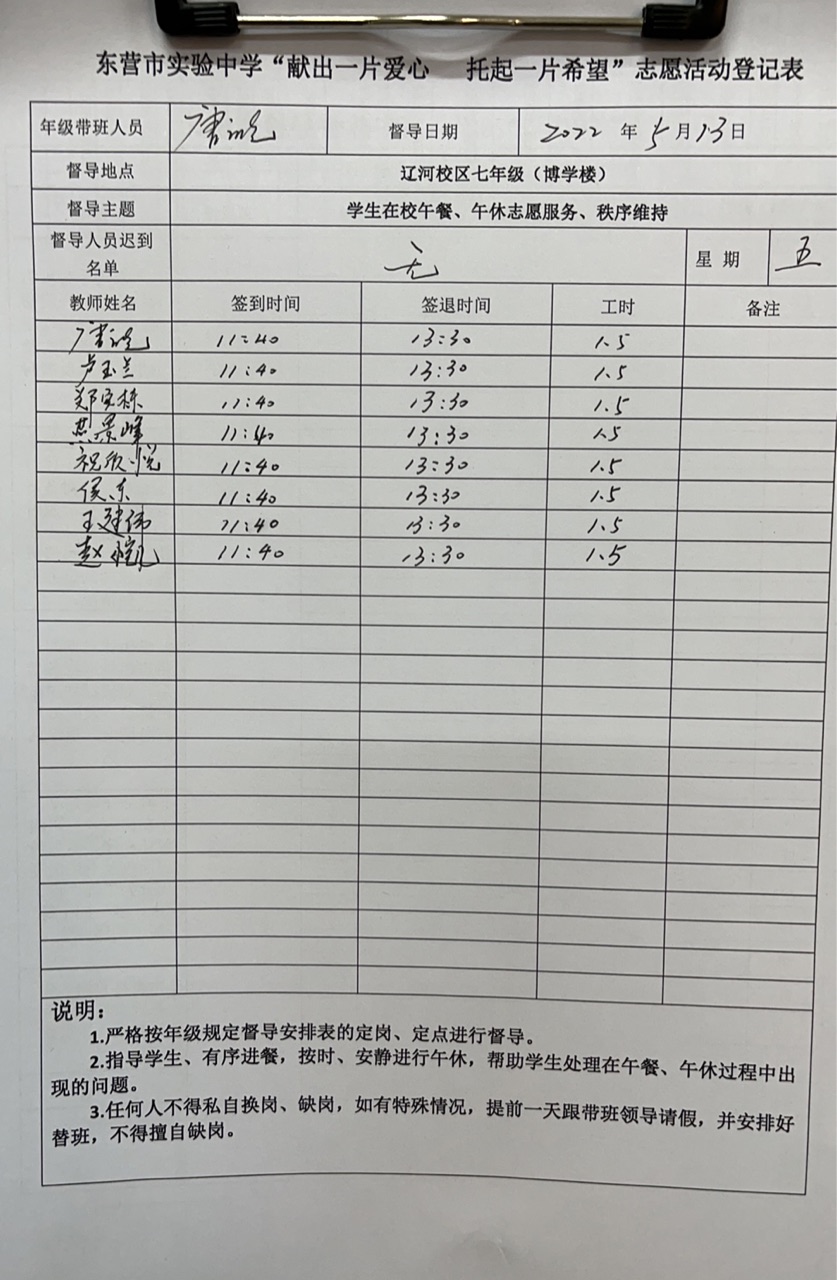 东营市实验中学“献出一片爱心 托起一片希望”志愿活动登记表
年级带班人员 督导日期 2022 年 5 月 13 日
督导地点 辽河校区七年级（博学楼）
督导主题 学生在校午餐、午休志愿服务、秩序维持
督导人员迟到名单 无 星 期 五
教师姓名 签到时间 签退时间 工时 备注
11:40 13:30 1.5
卢玉兰 11:40 13:30 1.5
11:40 13:30 1.5
燕景峰 11:40 13:30 1.5
祝欣悦 11:40 13:30 1.5
侯东 11:40 13:30 1.5
王建伟 11:40 13:30 1.5
赵 11:40 13:30 1.5
说明：
1.严格按年级规定督导安排表的定岗、定点进行督导。
2.指导学生、有序进餐，按时、安静进行午休，帮助学生处理在午餐、午休过程中出
现的问题。
3.任何人不得私自换岗、缺岗，如有特殊情况，提前一天跟带班领导请假，并安排好
替班，不得擅自缺岗。